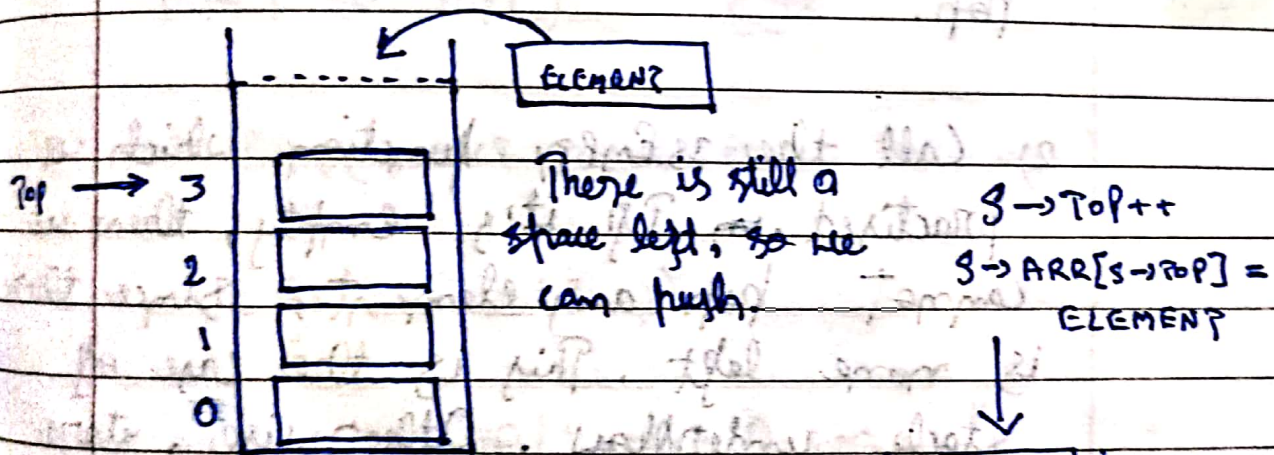 ELEMENT
Top → 3
2
1
0
There is still a
space left, so we
can push.
S → TOP++
S → ARR[S → TOP] =
ELEMENT